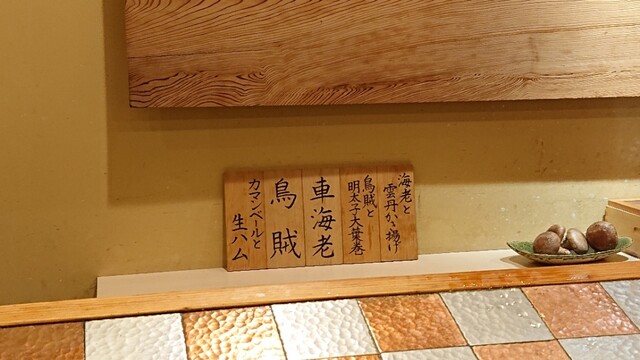 海老と
雲丹かき揚げ
烏賊と
明太子大葉巻
車海老
烏賊
カマンベールと
生ハム